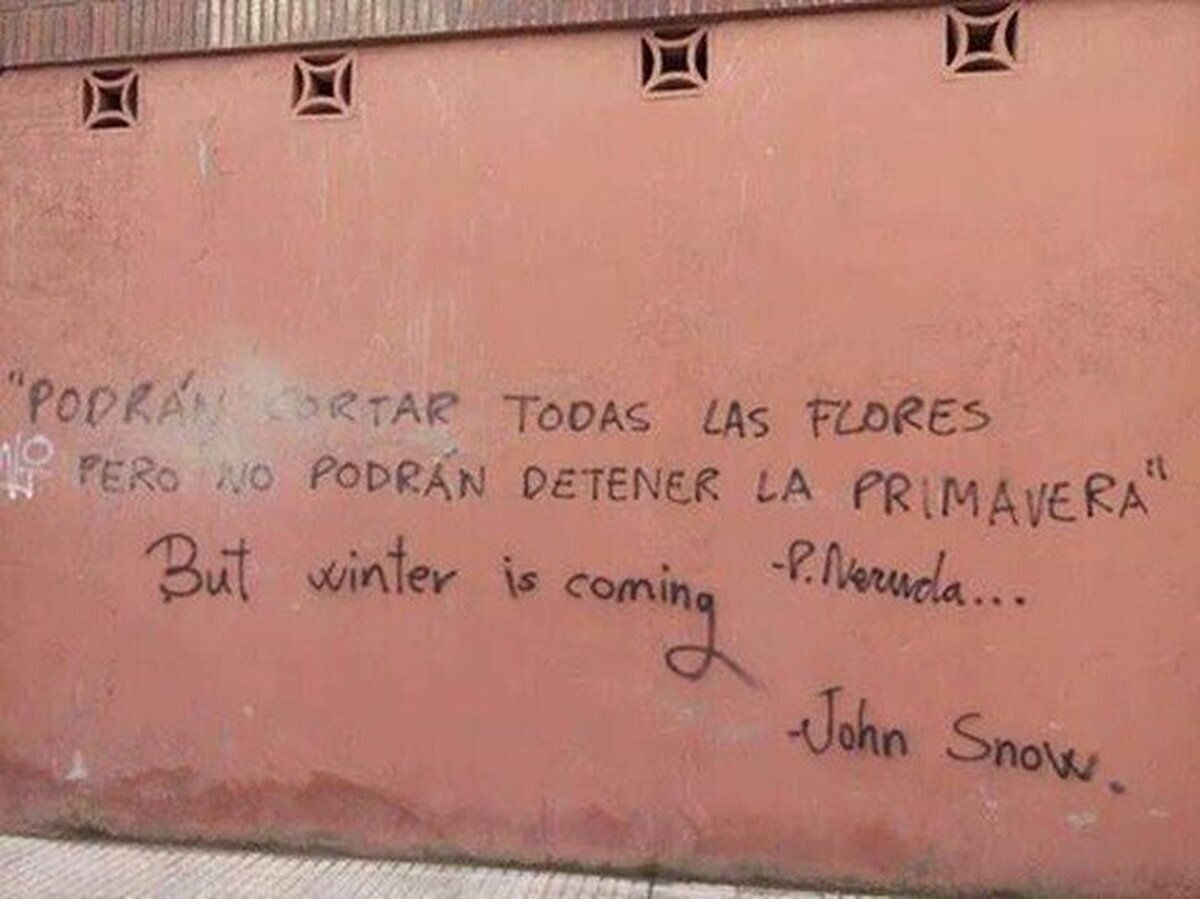 "PODRÁN CORTAR TODAS LAS FLORES
PERO NO PODRÁN DETENER LA PRIMAVERA"
-P. Neruda...
But winter is coming
-John Snow.